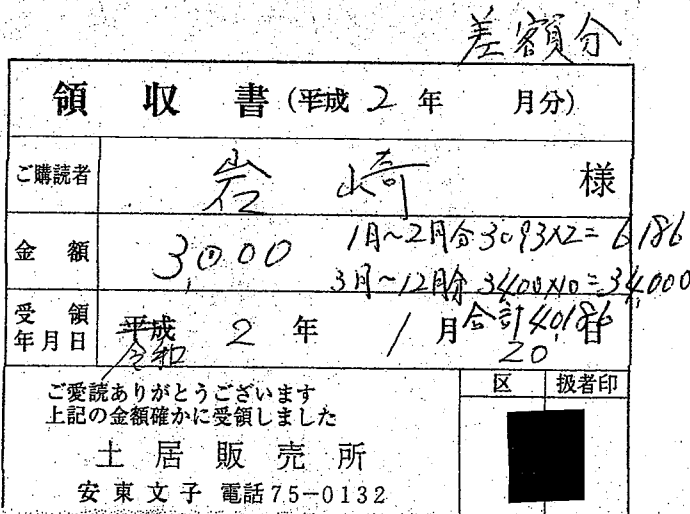 差額分
領収書(平成2年 月分)
ご購読者 岩崎 様
金額 3,000 1月~2月分 3093×2=6,186
3月~12月分 3400×10=34,000
合計40,186
受領年月日 平成 令和 2年 1月 20日
ご愛読ありがとうございます
上記の金額確かに受領しました
土居販売所
安東文子 電話75-0132
区 扱者印